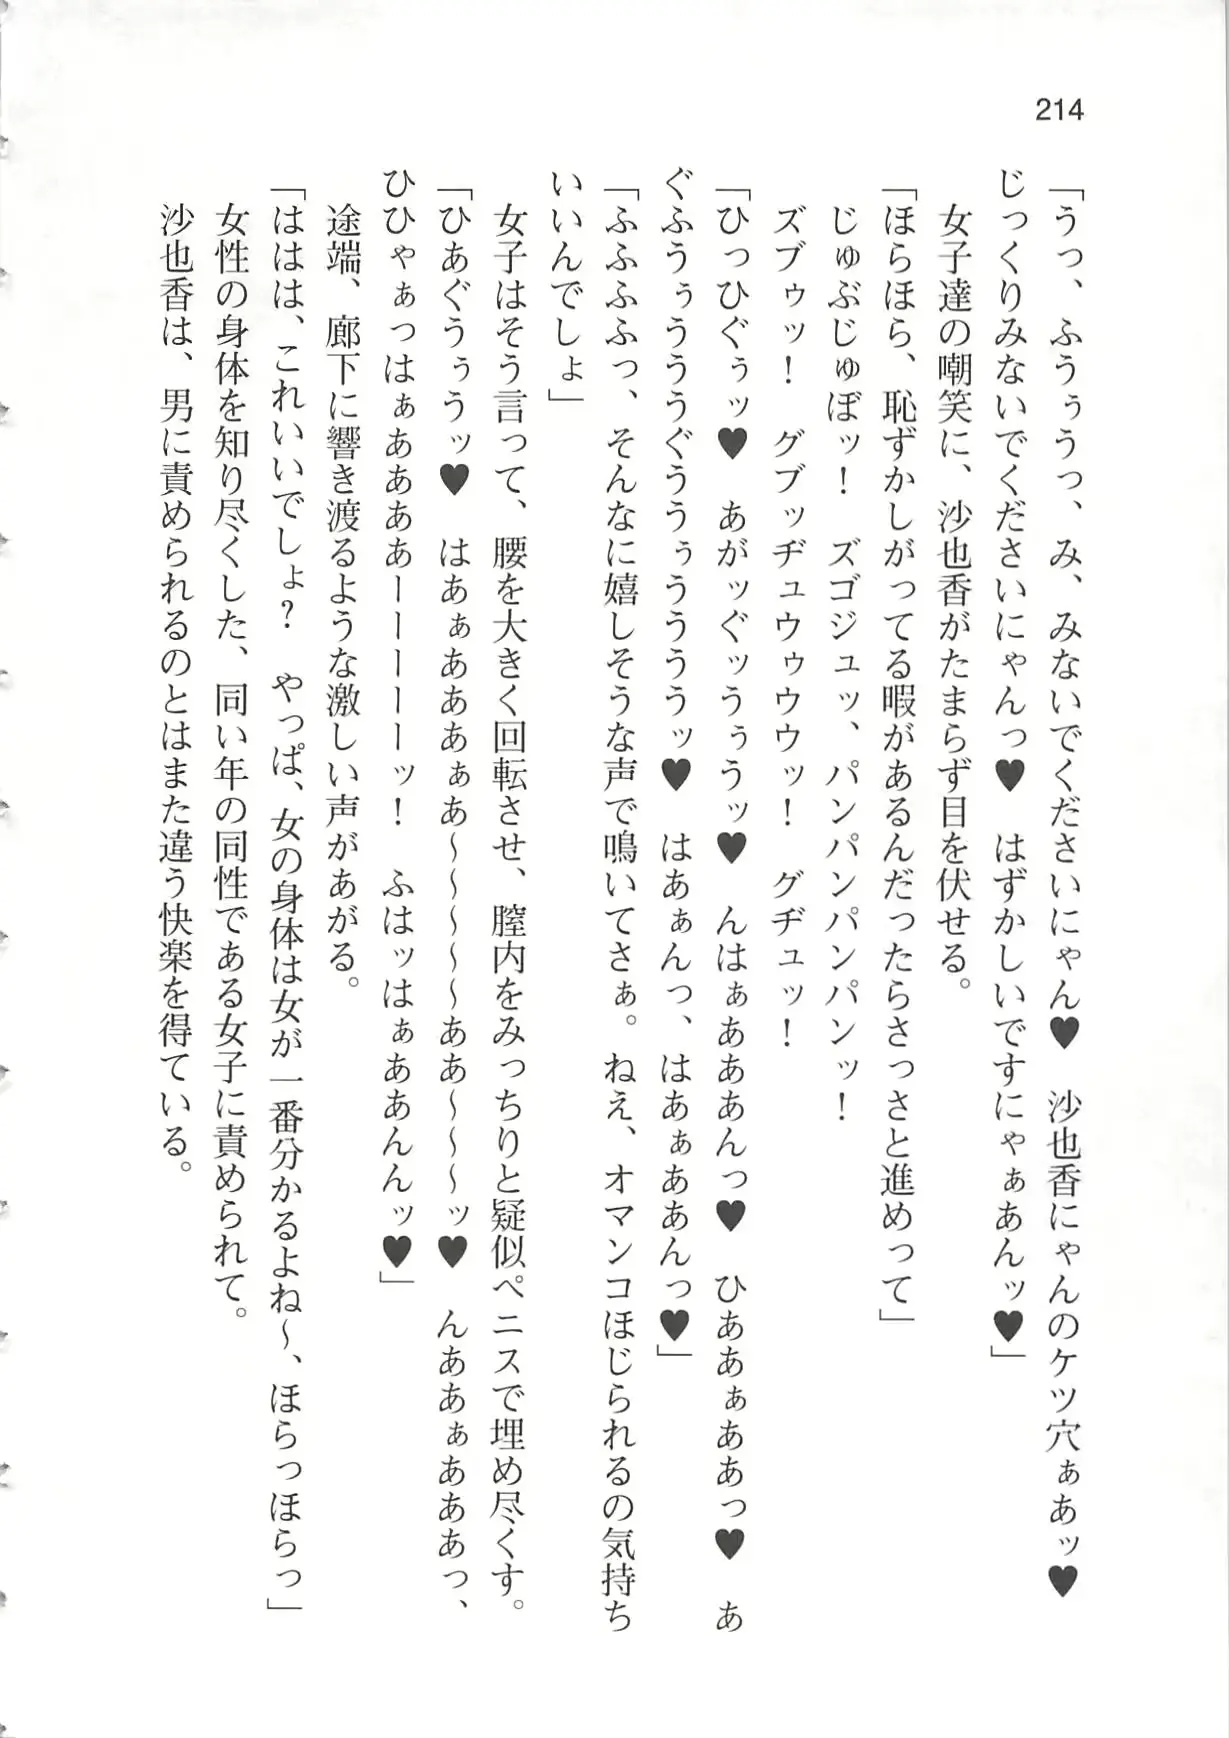 214
「うっ、ふうぅうっ、み、みないでくださいにゃん♥　沙也香にゃんのケツ穴ぁあッ♥
じっくりみないでくださいにゃんっ♥　はずかしいですにゃぁあんッ♥」
　女子達の嘲笑に、沙也香がたまらず目を伏せる。
「ほらほら、恥ずかしがってる暇があるんだったらさっさと進めって」
　じゅぶじゅぼッ！　ズゴジュッ、パンパンパンパンッ！
　ズブゥッ！　グブッヂュウゥウウッ！　グヂュッ！
「ひっひぐぅッ♥　あがッぐッうぅうッ♥　んはぁあああんっ♥　ひああぁああっ♥　あ
ぐふうぅうううぐううぅうううッ♥　はあぁんっ、はあぁああんっ♥」
「ふふふふっ、そんなに嬉しそうな声で鳴いてさぁ。ねえ、オマンコほじられるの気持ち
いいんでしょ」
　女子はそう言って、腰を大きく回転させ、膣内をみっちりと疑似ペニスで埋め尽くす。
「ひあぐうぅうッ♥　はあぁあああぁあ～～～～～ああ～～～ッ♥　んああぁあああっ、
ひひゃぁっはぁああああーーーーーッ！　ふはッはぁああんんッ♥」
　途端、廊下に響き渡るような激しい声があがる。
「ははは、これいいでしょ？　やっぱ、女の身体は女が一番分かるよね～、ほらっほらっ」
　女性の身体を知り尽くした、同い年の同性である女子に責められて。
　沙也香は、男に責められるのとはまた違う快楽を得ている。